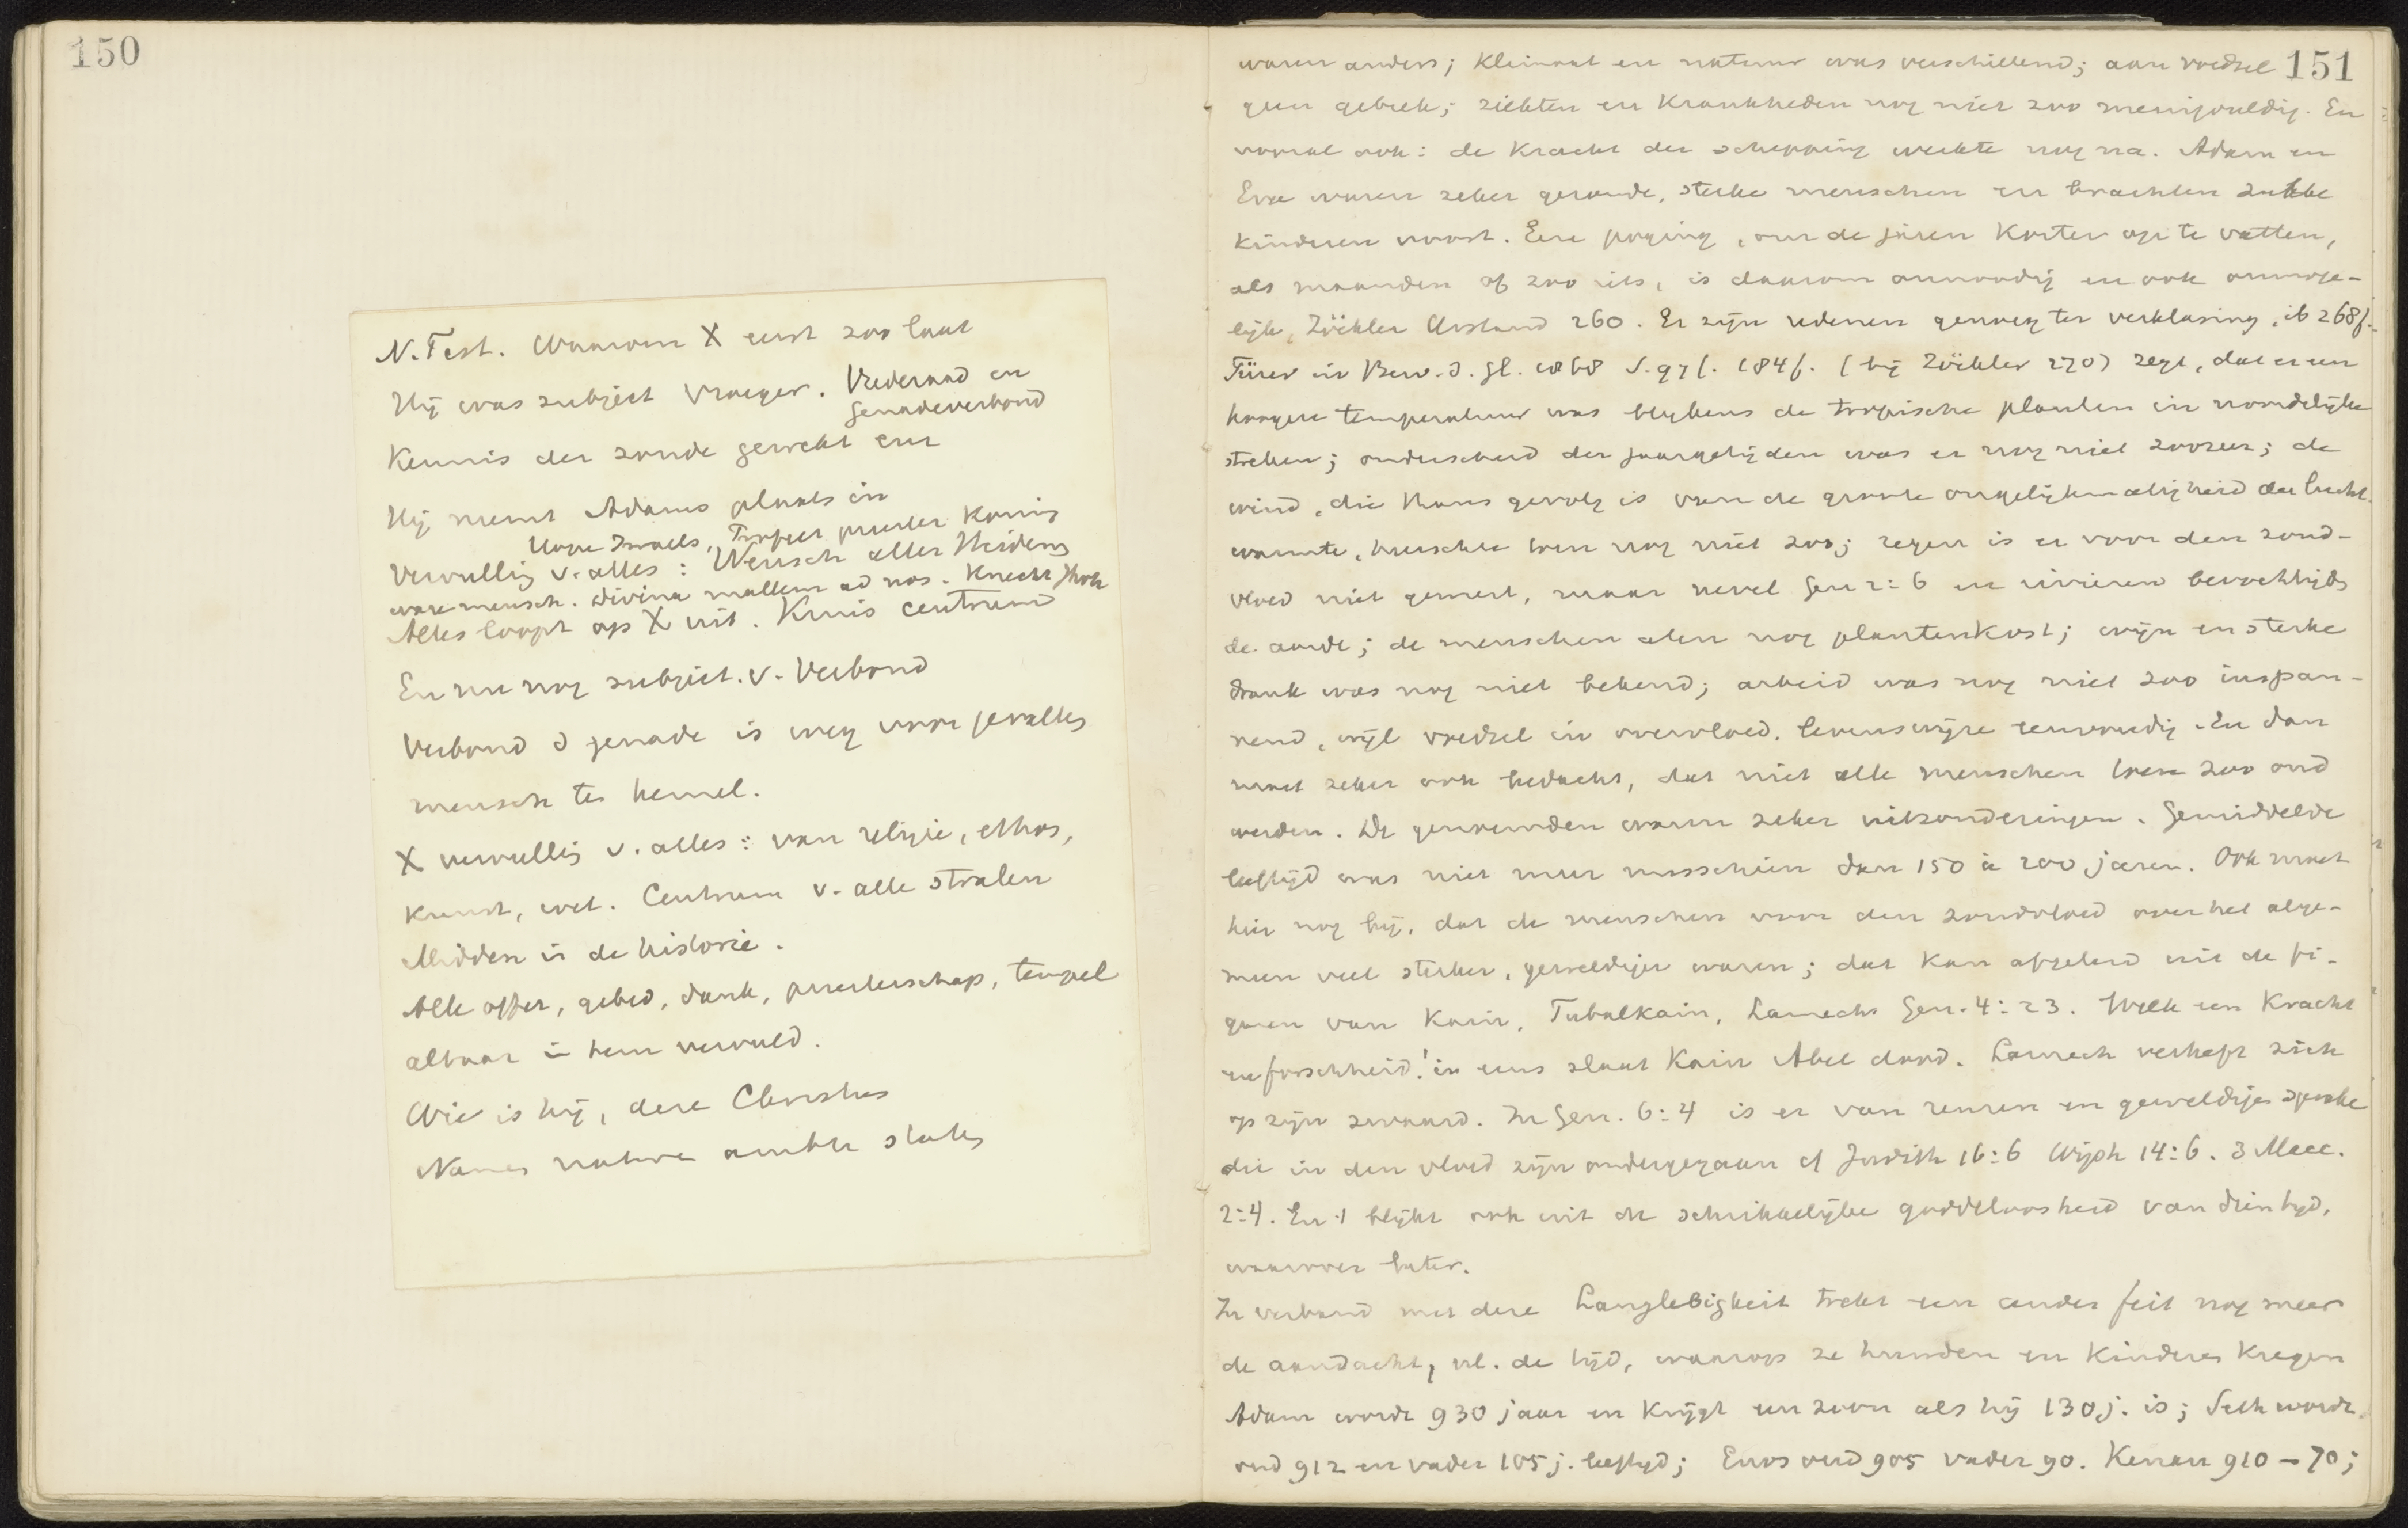 150
N. Test. Waarom X eerst zoo laat
Hij was subject vroeger. Vrederaad en
Genadeverbond
Kennis der zonde gewekt enz
Hij neemt Adams plaats in
Hope Israels, Profeet priester Koning
Vervulling v. alles: Wensch aller Heidenen
ware mensch. divina ad nos. Knecht Jhvh
Alles loopt op X uit. Kruis centrum
En nu nog subject. v. Verbond
Verbond d genade is weg voor gevallen
mensch ten hemel.
X vervulling v. alles: van religie, ethos,
Kunst, wet. Centrum v. alle stralen
Midden in de historie.
Alle offer, gebed, dank, priesterschap, tempel
altaar in hem vervuld.
Wie is hij, deze Christus
Namen natura ambten staten
151
waren anders; Klimaat en natuur was verschillend; aan voedsel
geen gebrek; ziekten en Krankheden nog niet zoo menigvuldig. En
vooral ook: de Kracht der schepping werkte nog na. Adam en
Eva waren zeker gezonde, sterke menschen en brachten zulke
Kinderen voort. Eene poging, om de jaren Korter op te vatten,
als maanden of zoo iets, is daarom onnoodig en ook onmoge-
lijk, Zöckler Urstand 260. Er zijn redenen genoeg ter verklaring, ib 268f.
in Bew. d. Gl. 1868 S. 97f. 184f. (bij Zöckler 270) zegt, dat er een
hoogere temperatuur was blijkens de tropische planten in noordelijke
streken; onderscheid der jaargetijden was er nog niet zoozeer; de
wind, die thans gevolg is van de groote ongelijkmatigheid der lucht-
warmte, heerschte toen nog niet zoo; regen is er voor den zond-
vloed niet geweest, maar nevel Gen 2:6 en rivieren bevochtigden
de aarde; de menschen aten nog plantenkost; wijn en sterke
drank was nog niet bekend; arbeid was nog niet zoo inspan-
nend, wijl voedsel in overvloed. levenswijze eenvoudig. En dan
moet zeker ook bedacht, dat niet alle menschen toen zoo oud
werden. De genoemden waren zeker uitzonderingen. Gemiddelde
leeftijd was niet meer misschien dan 150 à 200 jaren. Ook moet
hier nog bij, dat de menschen voor den zondvloed over het alge-
meen veel sterker, geweldiger waren; dat kan afgeleid uit de fi-
guren van Kain, Tubalkain, Lamechs Gen. 4:23. Welk een Kracht
en forschheid! in eens slaat Kain Abel dood. Lamech verheft zich
op zijn zwaard. In Gen. 6:4 is er van reuzen en geweldigen sprake
die in den vloed zijn ondergegaan cf Judith 16:6 Wijsh 14:6. 3 Macc.
2:4. En 't blijkt ook uit de schrikkelijke goddeloosheid van dien tijd,
waarover later.
In verband met deze Langlebigkeit trekt een ander feit nog meer
de aandacht, nl. de tijd, waarop ze huwden en Kinderen Kregen
Adam wordt 930 jaar en Krijgt een zoon als hij 130 j. is; Seth wordt
oud 912 en vader 105 j. leeftijd; Enos oud 905 vader 90. Kenan 910 – 70;